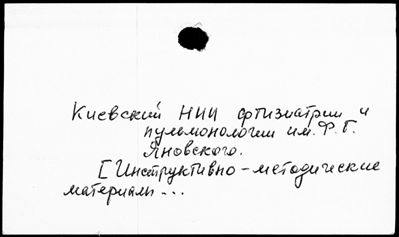 Киевский НИИ фтизиатрии и
пульмонологии им. Ф. Г.
Яновского.
[Инструктивно-методические
материалы...